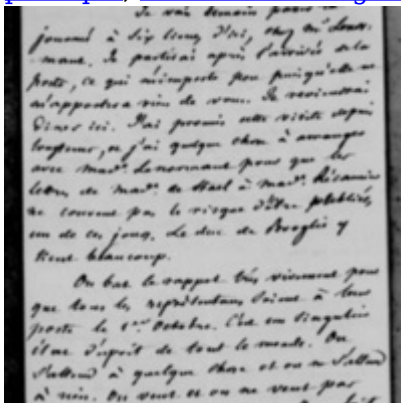 Je vais demain passer la
journée à six lieues d'ici, chez Mr Lenor-
mant. Je partirai après l'arrivée de la
poste, ce qui m'importe peu puisqu'elle ne
m'apportera rien de vous. Je reviendrai
diner ici. J'ai promis cette visite depuis
longtems, et j'ai quelque chose à arranger
avec Made. Lenormant pour que les
lettres de Made. de Stael à Made. Récamier
ne courent pas le risque d'être publiées
un de ces jours. Le duc de Broglie y
tient beaucoup.
On bat le rappel très vivement pour
que tous les représentans soient à leur
poste le 1er Octobre. C'est un singulier
état d'esprit de tout le monde. On
s'attend à quelque chose et on ne s'attend
à rien. On veut et on ne veut pas